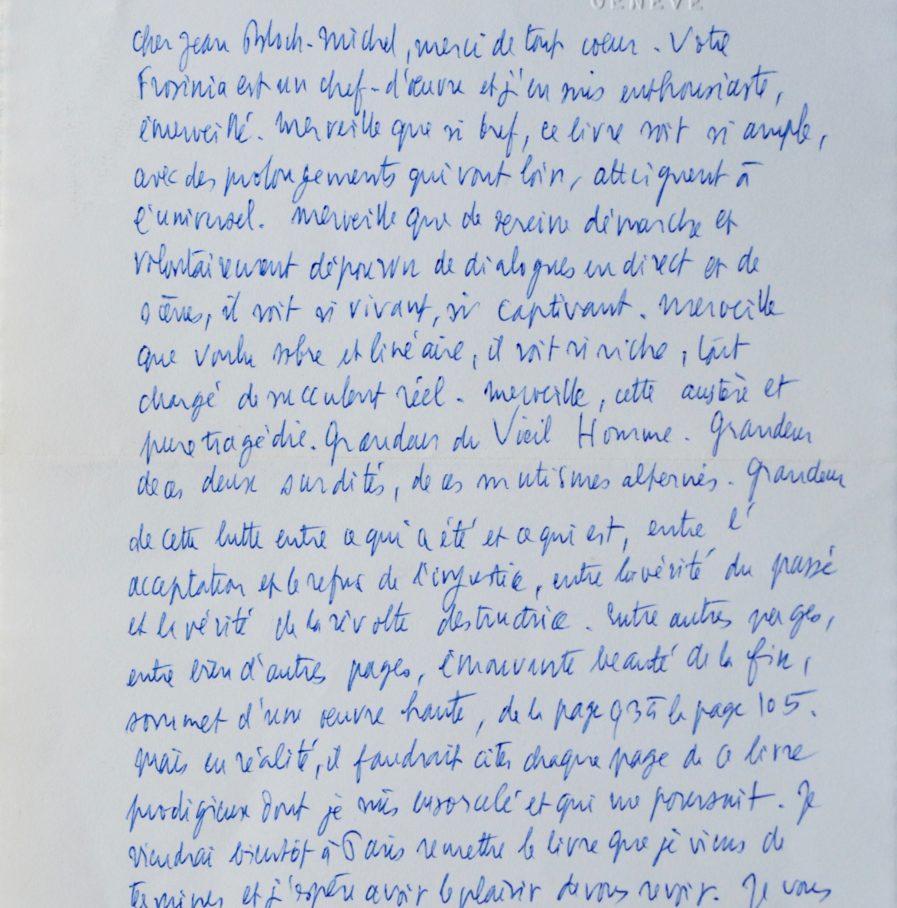 GENÈVE
Cher Jean Bloch-Michel, merci de tout coeur. Votre
Frosinia est un chef-d'œuvre et j'en suis enthousiaste,
émerveillé. Merveille que si bref, ce livre soit si ample,
avec des prolongements qui vont loin, atteignent à
l'universel. Merveille que de sereine démarche et
volontairement dépourvu de dialogues en direct et de
scènes, il soit si vivant, si captivant. Merveille
que voulu sobre et linéaire, il soit si riche, tout
chargé de succulent réel. Merveille, cette austère et
pure tragédie. Grandeur du Vieil Homme. Grandeur
de ces deux surdités, de ces mutismes alternés. Grandeur
de cette lutte entre ce qui a été et ce qui est, entre l'
acceptation et le refus de l'injustice, entre la vérité du passé
et la vérité de la révolte destructrice. Entre autres pages,
entre bien d'autres pages, émouvante beauté de la fin,
sommet d'une œuvre haute, de la page 93 à la page 105.
Mais en réalité, il faudrait citer chaque page de ce livre
prodigieux dont je suis ensorcelé et qui me poursuit. Je
viendrai bientôt à Paris remettre le livre que je viens de
terminer et j'espère avoir le plaisir de vous revoir. Je vous